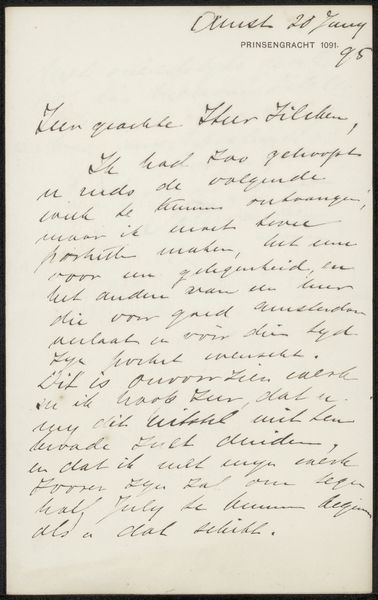 Amst 20 Juny
PRINSENGRACHT 1091.
95
Zeer geachte Heer Zilcken,
Ik had zoo gehoopt
u reeds de volgende
week te kunnen ontvangen,
maar ik moet twee
portretten maken, het eene
voor een gelegenheid, en
het andere van een heer
die voor goed Amsterdam
verlaat en vóór dien tyd
zyn portret wenscht.
Dit is onvoorzien werk
en ik hoop zeer, dat u
my dit uitstel niet ten
kwade zult duiden,
en dat ik met myn werk
zoover zyn zal om tegen
half July te kunnen beginnen
als u dat schikt.